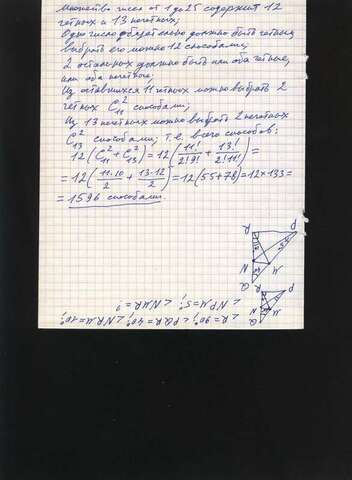 Множество чисел от 1 до 25 содержит 12
чётных и 13 нечётных;
Одно число обязательно должно быть чётным,
выбрать его можно 12 способами;
2 остальных должно быть или оба чётные,
или оба нечётные;
Из оставшихся 11 чётных можно выбрать 2
чётных C²₁₁ способами;
Из 13 нечётных можно выбрать 2 нечётных
C²₁₃ способами; т.е. всего способов:
12(C²₁₁ + C²₁₃) = 12(11!/2!9! + 13!/2!11!) =
= 12(11·10/2 + 13·12/2) = 12(55+78) = 12×133 =
= 1596 способами.
R P
N M
Q
R P
N M
Q
∠R=90°; ∠PQR=40°; ∠NRM=10°;
∠NPM=5°; ∠NMR=?